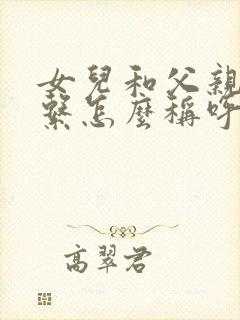 女兒和父親
繫怎麼稱呼
高翠君